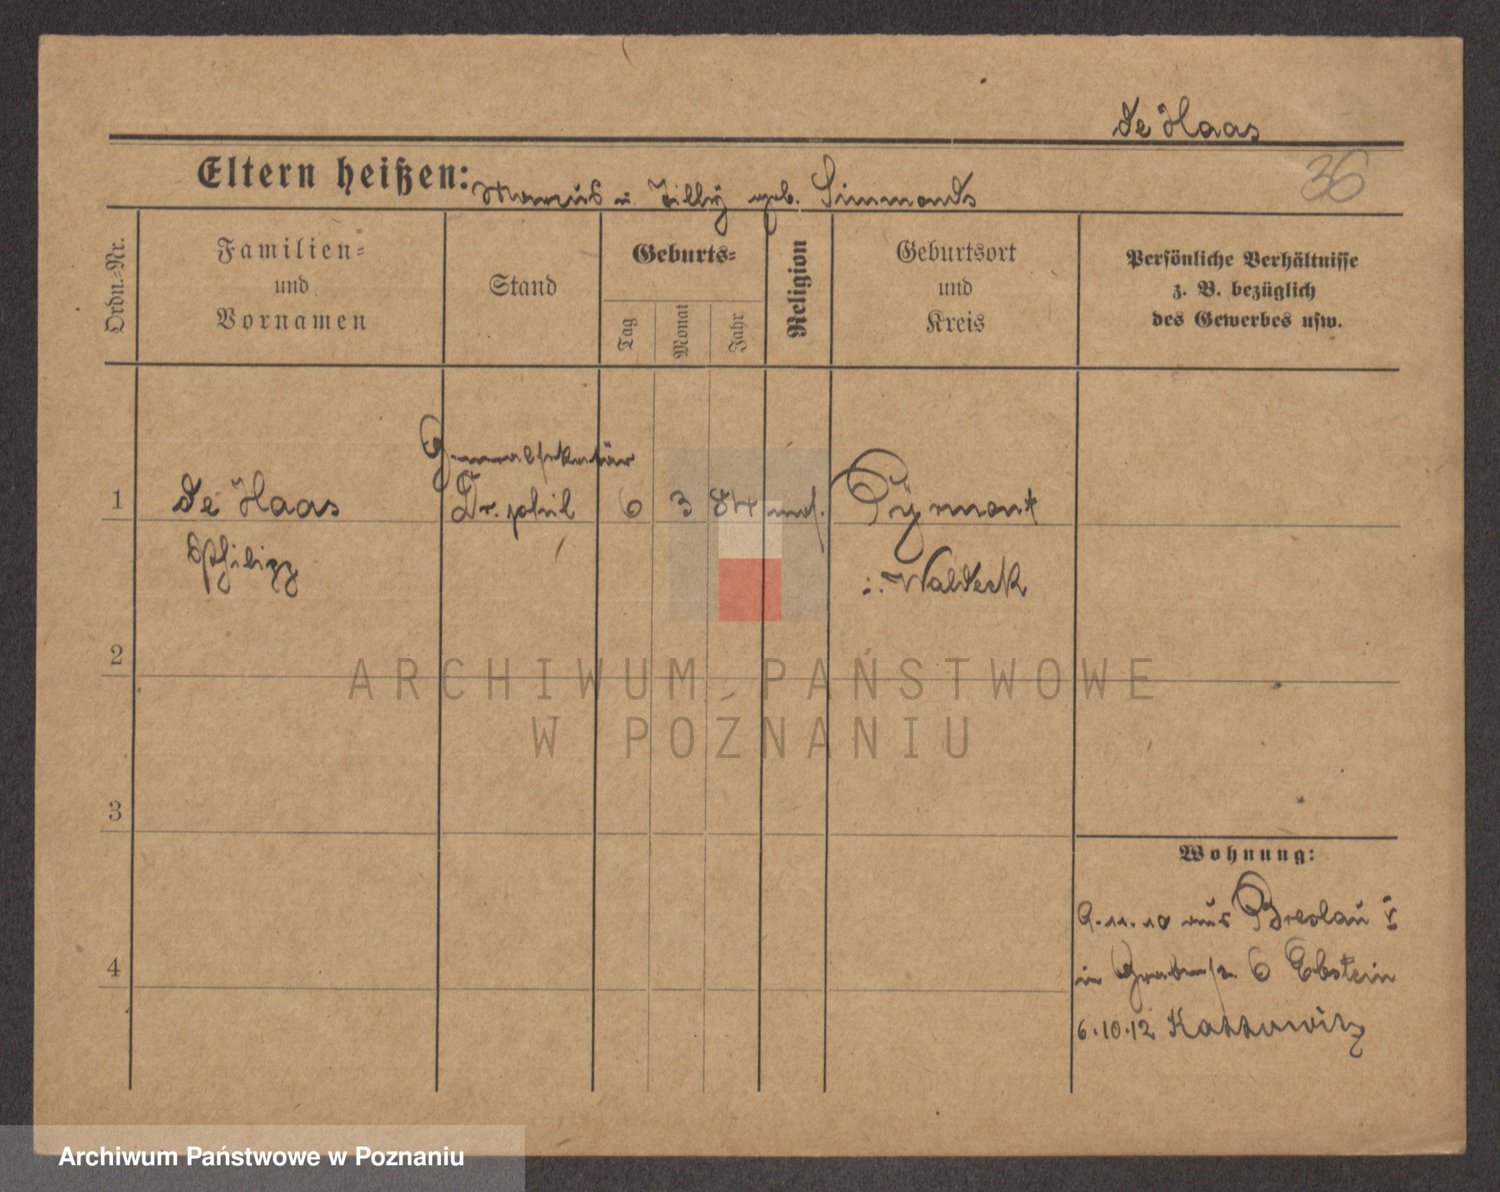 de Haas
36
Eltern heißen: Marcus u. Jilly geb. Simmonds
Ordn.-Nr.
Familien-
und
Vornamen
Stand
Geburts-
Tag
Monat
Jahr
Religion
Geburtsort
und
Kreis
Persönliche Verhältnisse
z. B. bezüglich
des Gewerbes usw.
Generalsekretär
1 de Haas Dr. phil 6 3 84 mos. Pyrmont
Philipp i. Waldeck
2
3
4
Wohnung:
9.11.10 aus Breslau
in 6 Ebstein
6.10.12 Kattowitz
ARCHIWUM PAŃSTWOWE
W POZNANIU
Archiwum Państwowe w Poznaniu